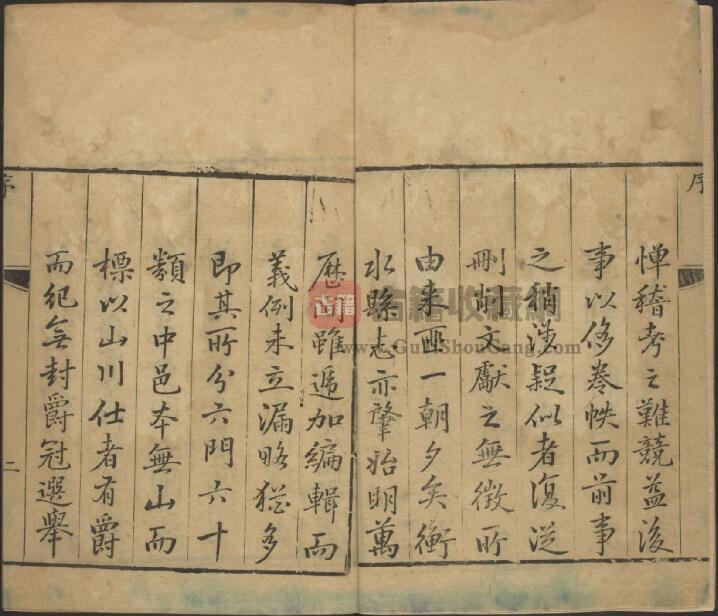 序
憚稽考之難競益後
事以侈卷帙而前事
之稍涉疑似者復從
刪削文獻之無徵所
由来匪一朝夕矣衡
水縣志亦肇始明萬
歷 雖遞加編輯而
義例未立漏略猶多
即其所分六門六十
類之中邑本無山而
標以山川仕者有爵
而紀無封爵冠選舉
序
二
古籍
古籍收藏網
www.GuJiShouCang.com